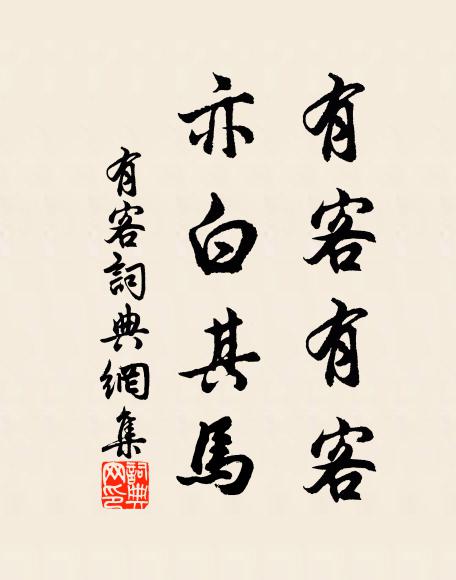 有客有客
亦白其馬
有客詞典網集
詞典网印